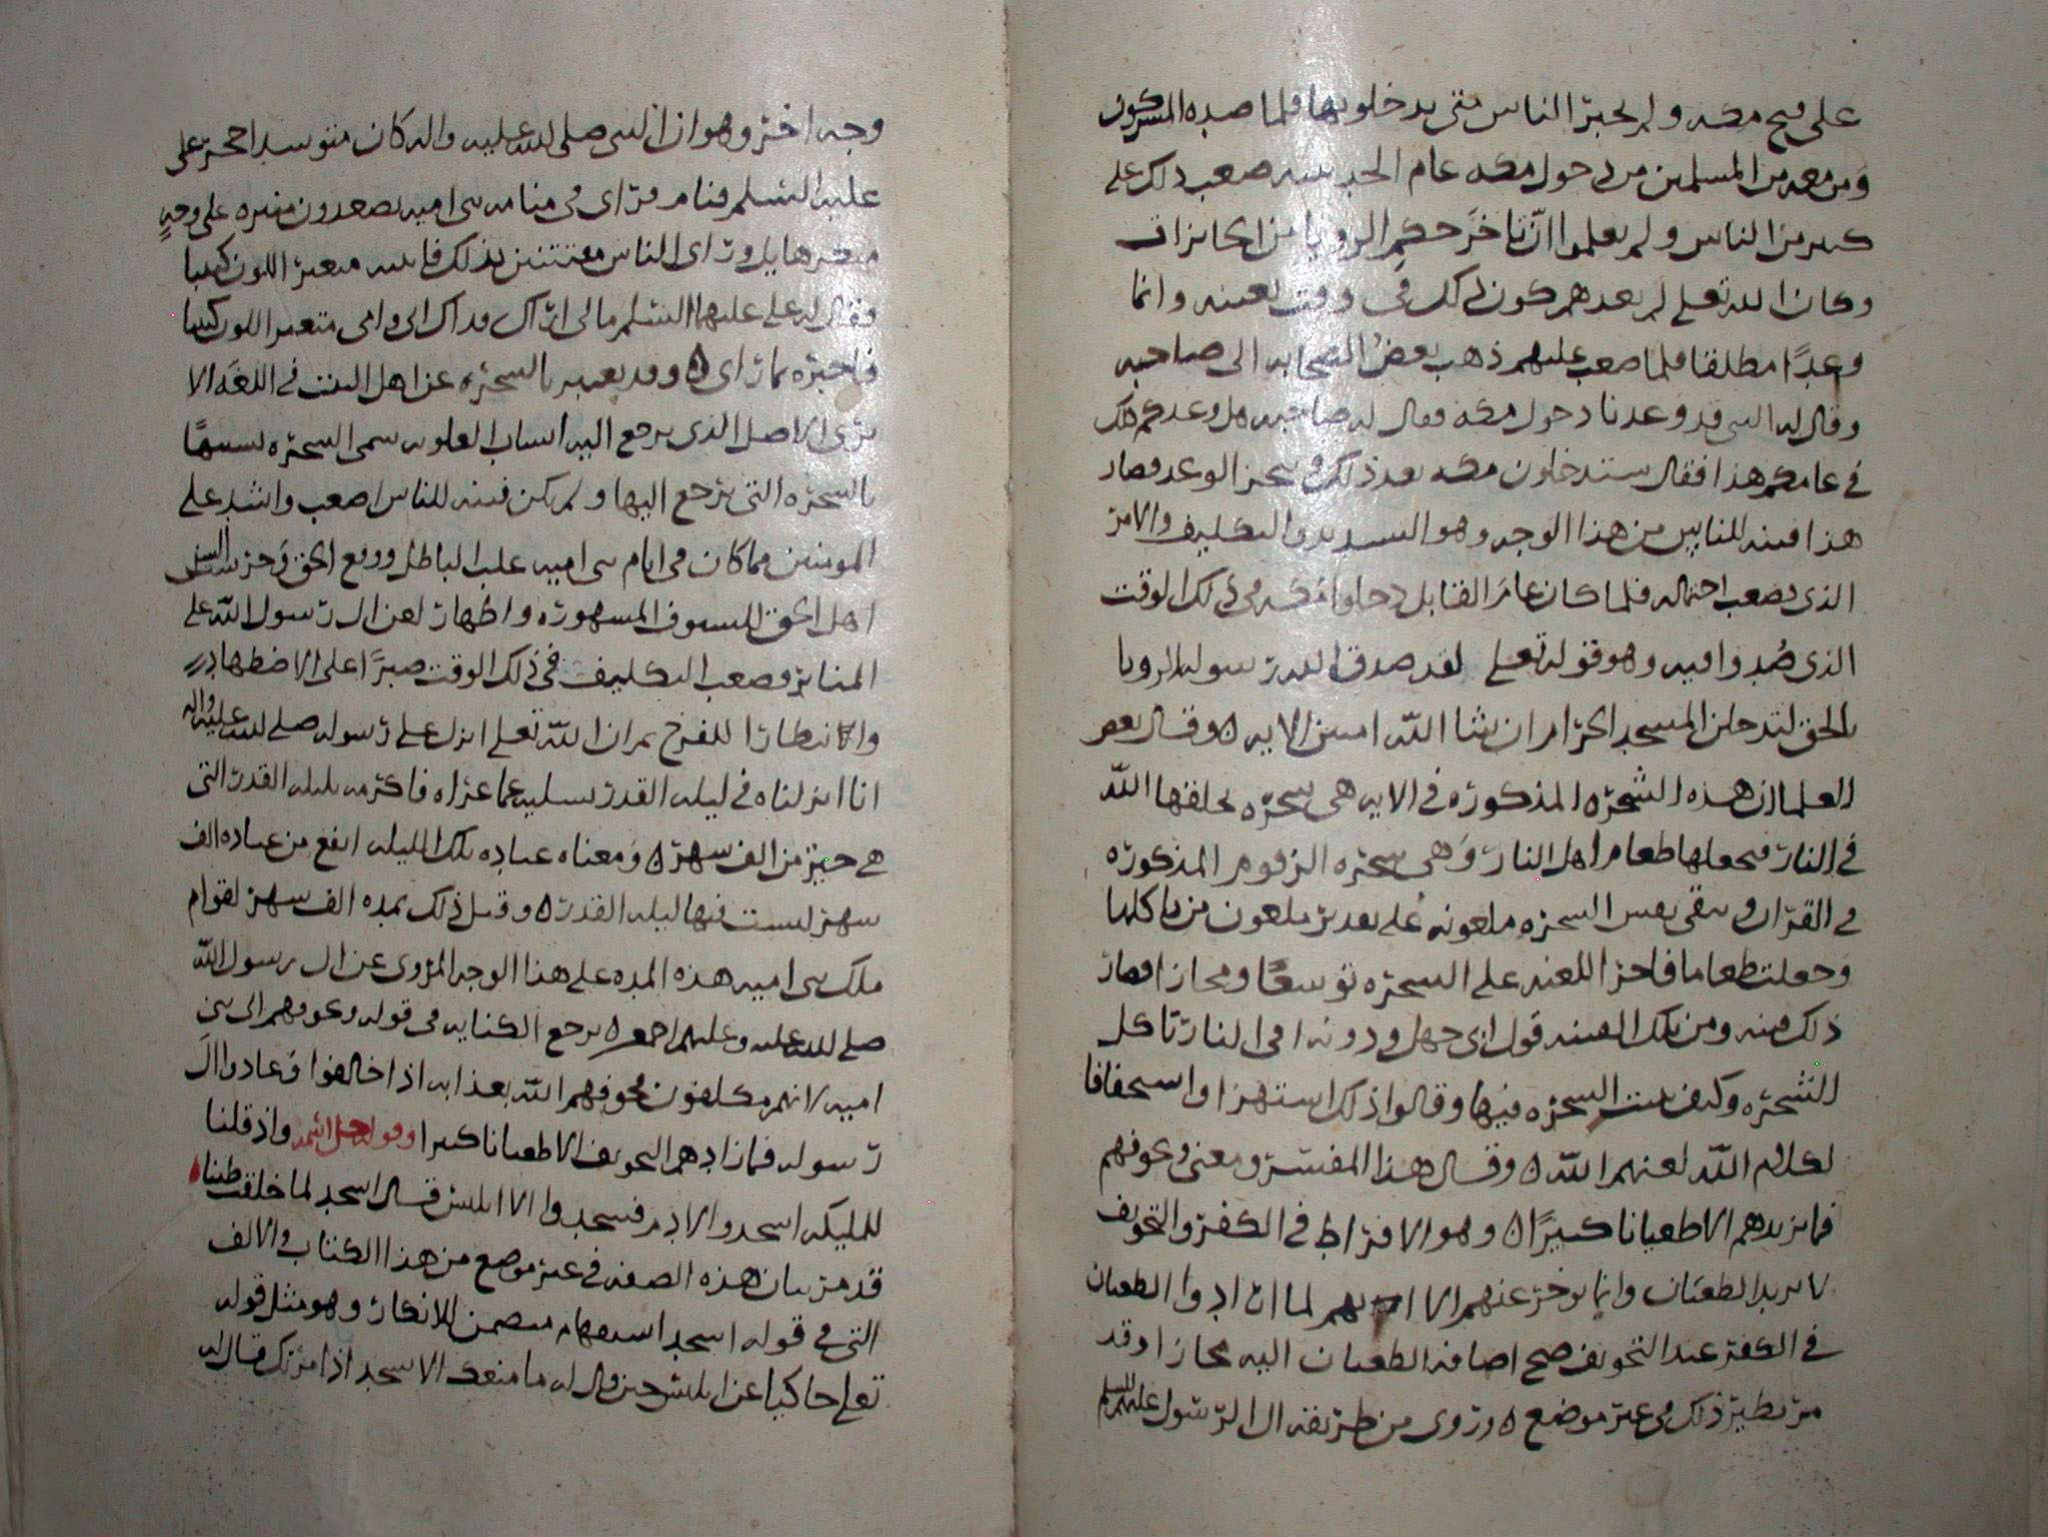 على فتح مكه ولم يخبر الناس متى يدخلونها فلما صده المشركون
ومن معه من المسلمين من دخول مكه عام الحديبيه صعب ذلك على
كثير من الناس ولم يعلموا ان تاخر حكم الرويا من الجايزات
وكان الله تعلى لم يعدهم كون ذلك في وقت بعينه وانما
وعدا مطلقا فلما صعب عليهم ذهب بعض الصحابه الى صاحبه
وقال له النبي قد وعدنا دخول مكه فقال له صاحبه هل وعدكم ذلك
في عامكم هذا فقال ستدخلون مكه بعد ذلك وينجز الوعد فصار
هذا فتنه للناس من هذا الوجه وهو التشديد والتكليف والامر
الذي يصعب احتماله فلما كان عام القابل دخلوا مكه في ذلك الوقت
الذي صدوا فيه وهو قوله تعلى لقد صدق الله رسوله الرويا
بالحق لتدخلن المسجد الحرام ان شا الله امنين الايه وقال بعض
العلما ان هذه الشجره المذكوره في الايه هي شجره يخلقها الله
في النار فيجعلها طعام اهل النار وهي شجره الزقوم المذكوره
في القران وبقي نفس الشجره ملعونه على تقدير ملعون من ياكلها
وجعلت طعاما فاجرا اللعنه على الشجره توسعا ومجازا فصار
ذلك فتنه ومن تلك الفتنه قول ابي جهل ودونه افي النار تاكل
الشجره وكيف تنبت الشجره فيها وقالوا ذلك استهزا واستخفافا
لكلام الله لعنهم الله وقال هذا المفسر ومعنى ونخوفهم
فما نزيدهم الا طغيانا كبيرا وهو الافراط في الكفر والتخويف
لا يزيد الطغيان وانما يوخر عنهم الا لهم لما ازدادوا الطغيان
في الكفر عند التخويف صح اضافه الطغيان اليه مجازا وقد
مر نظير ذلك في غير موضع وروى من طريقه ال الرسول عليهم السلم
وجه اخر وهو ان النبي صلى الله عليه واله كان متوسدا حجر على
عليه السلم فنام فراى في منامه بني اميه يصعدون منبره على وجه
منكر هايل وراى الناس مفتتنين بذلك فانتبه متغير اللون كئيبا
فقال له علي عليهما السلم مالي اراك فداك ابي وامي متغير اللون كئيبا
فاخبره بما راى وقد يعبر بالشجره عن اهل البيت في اللغه الا
ترى الاصل الذي يرجع اليه انساب العلويه سمى الشجره تشبيها
بالشجره التي يرجع اليها ولم يكن فتنه للناس اصعب واشد على
المومنين مما كان في ايام بني اميه غلب الباطل ووقع الحق وحز
اهل الحق للسيوف المشهوره واظهار لعن ال رسول الله على
المنابر وصعب التكليف في ذلك الوقت صبرا على الاضطهاد
والانتظار للفرج ثم ان الله تعلى انزل على رسوله صلى الله عليه واله
انا انزلناه في ليله القدر تسليه عما عراه فاكرمه بليله القدر التي
هي خير من الف شهر ومعناه عباده تلك الليله انفع من عباده الف
شهر ليست فيها ليله القدر وقيل ذلك بمده الف شهر لقوام
ملك بني اميه هذه المده على هذا الوجه المروي عن ال رسول الله
صلى الله عليه وعليهم اجمع يرجع الكنايه في قوله ونخوفهم الى بني
اميه لانهم مكلفون يخوفهم الله بعذابه اذا خالفوا وعادوا ال
رسوله فما زادهم التخويف الا طغيانا كبيرا وقوله جل اسمه واذ قلنا
للمليكه اسجدوا لادم فسجدوا الا ابليس قال اسجد لما خلقت طينا
قد مر بيان هذه الصفه في غير موضع من هذا الكتاب والالف
التي في قوله اسجد استفهام متضمن للانكار وهو مثل قوله
تعلى حاكيا عن ابليس حين قال له ما منعك الا تسجد اذ امرتك قال له